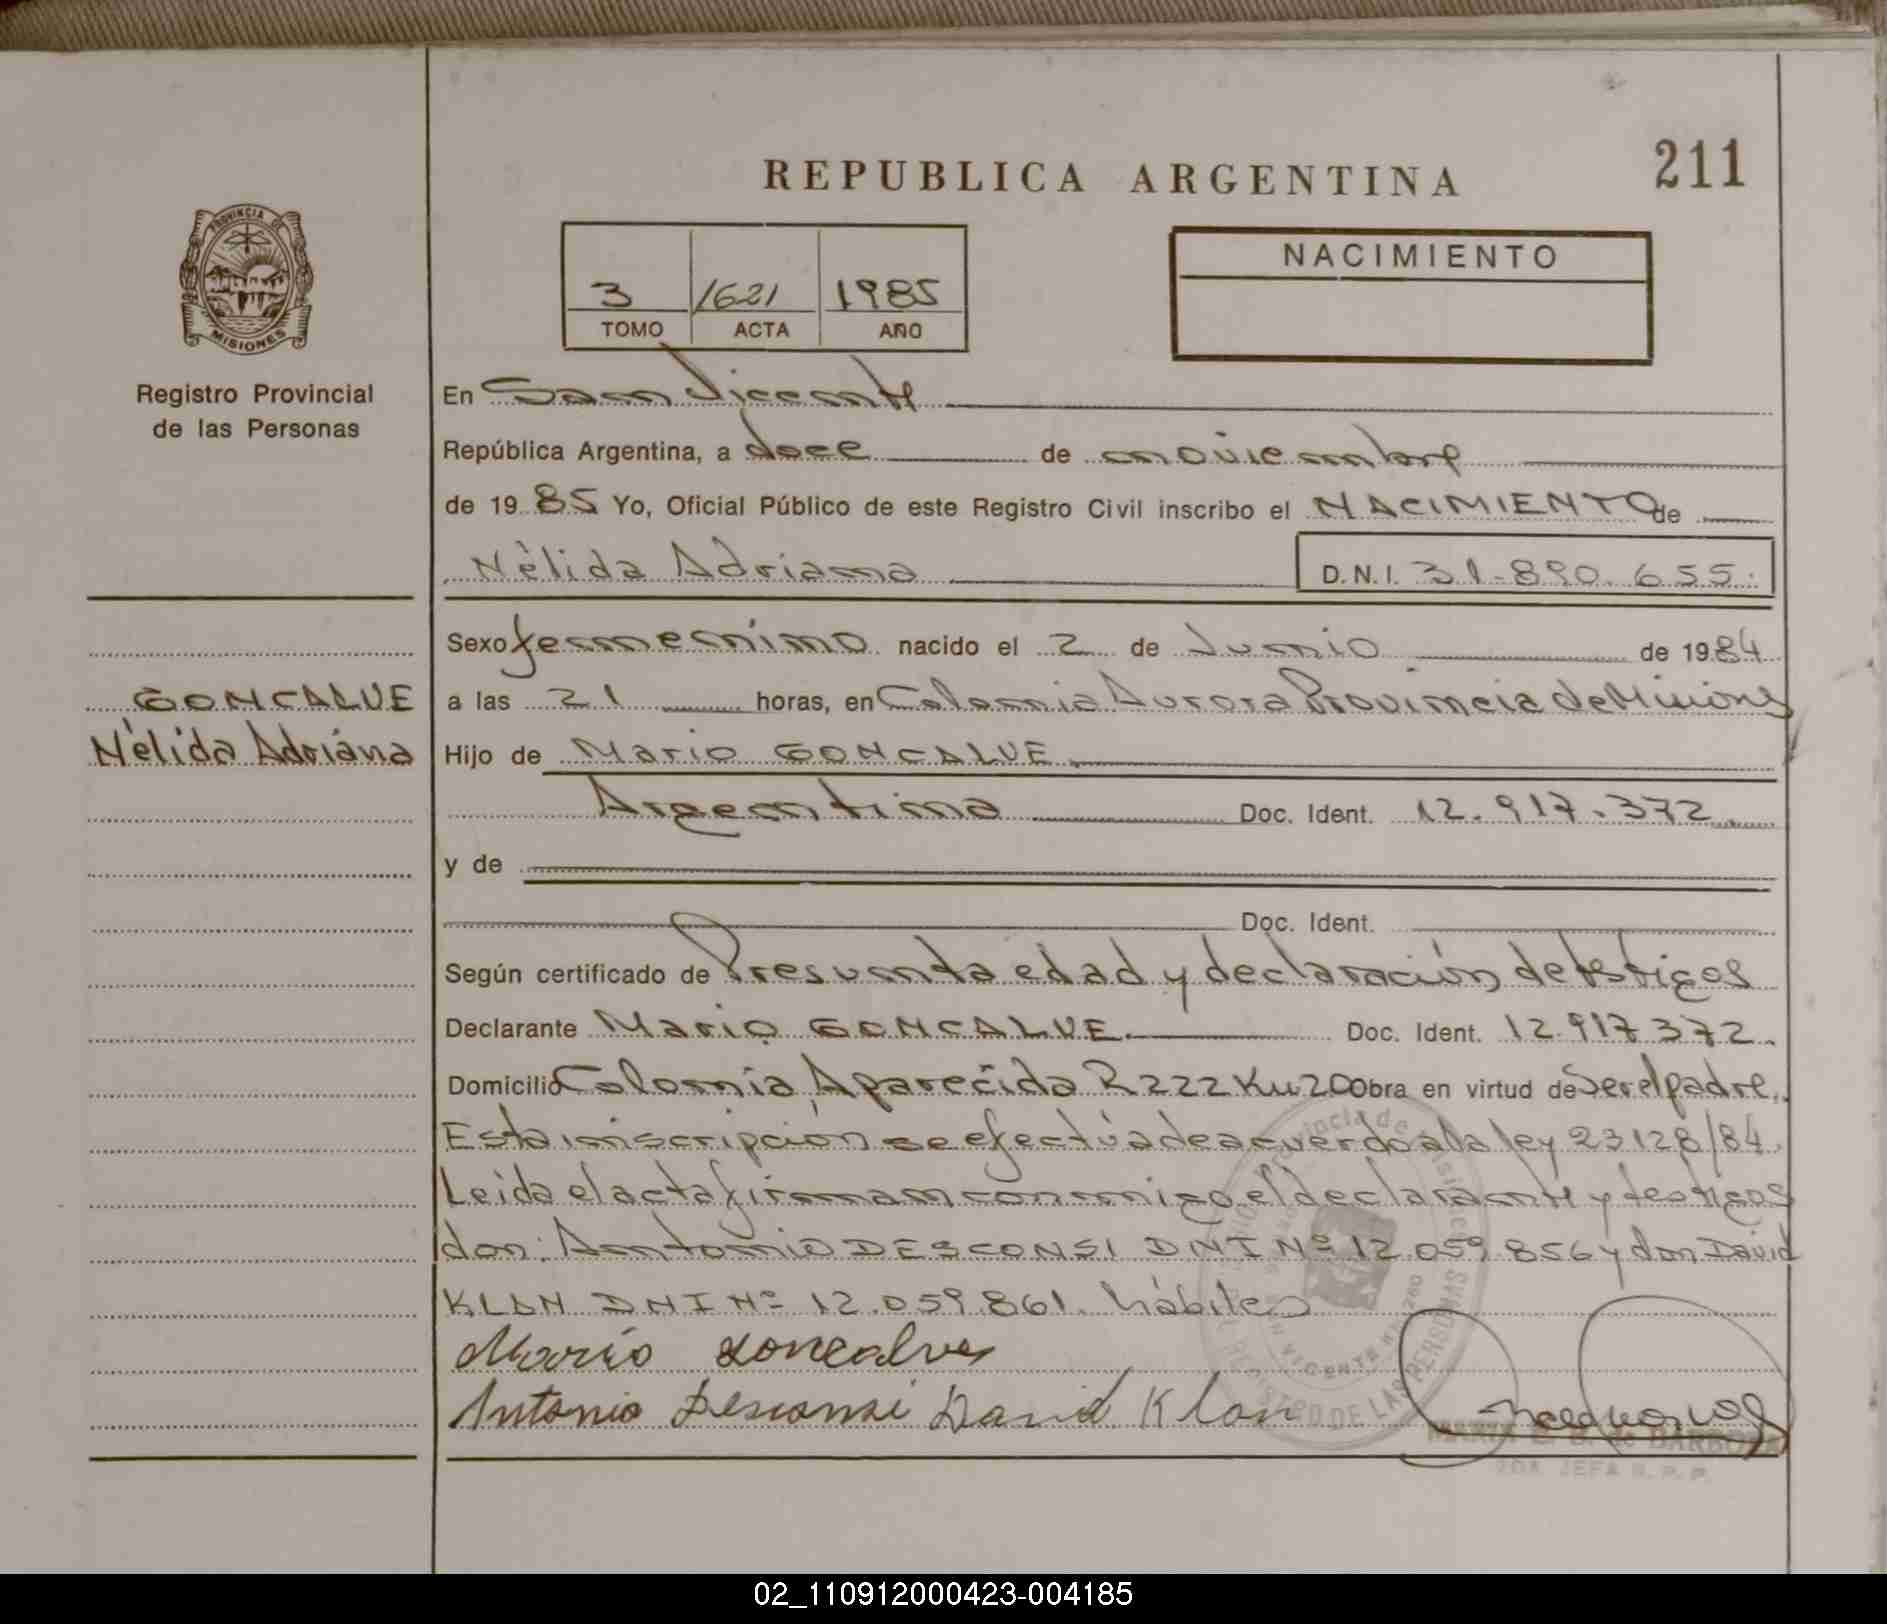 REPUBLICA ARGENTINA
211
PROVINCIA DE
MISIONES
Registro Provincial
de las Personas
3 1621 1985
TOMO ACTA AÑO
NACIMIENTO
En San Vicente
República Argentina, a doce de noviembre
de 19 85 Yo, Oficial Público de este Registro Civil inscribo el NACIMIENTO de
Nélida Adriana D.N.I. 31.890.655.
Sexo femenino nacido el 2 de Junio de 1984
GONCALVE
Nélida Adriana
a las 21 horas, en Colonia Aurora Provincia de Misiones
Hijo de Mario GONCALVE
Argentina Doc. Ident. 12.917.372
y de
Doc. Ident.
Según certificado de Presunta edad y declaración de testigos
Declarante Mario GONCALVE. Doc. Ident. 12.917372.
Domicilio Colonia Aparecida R222 Km 20 Obra en virtud de Ser el padre.
Esta inscripción se efectúa de acuerdo a la ley 23128/84.
Leida el acta firman conmigo el declarante y testigos
don: Antonio DESCONSI DNI Nº 12.059.856 y don David
KLAN DNI Nº 12.059.861. hábiles
Mario Goncalves
Antonio Desconsi David Klan
REGISTRO DE LAS PERSONAS
SAN VICENTE
MARIA E. B. de BARBOZA
JEFA R. P. P.
02_110912000423-004185